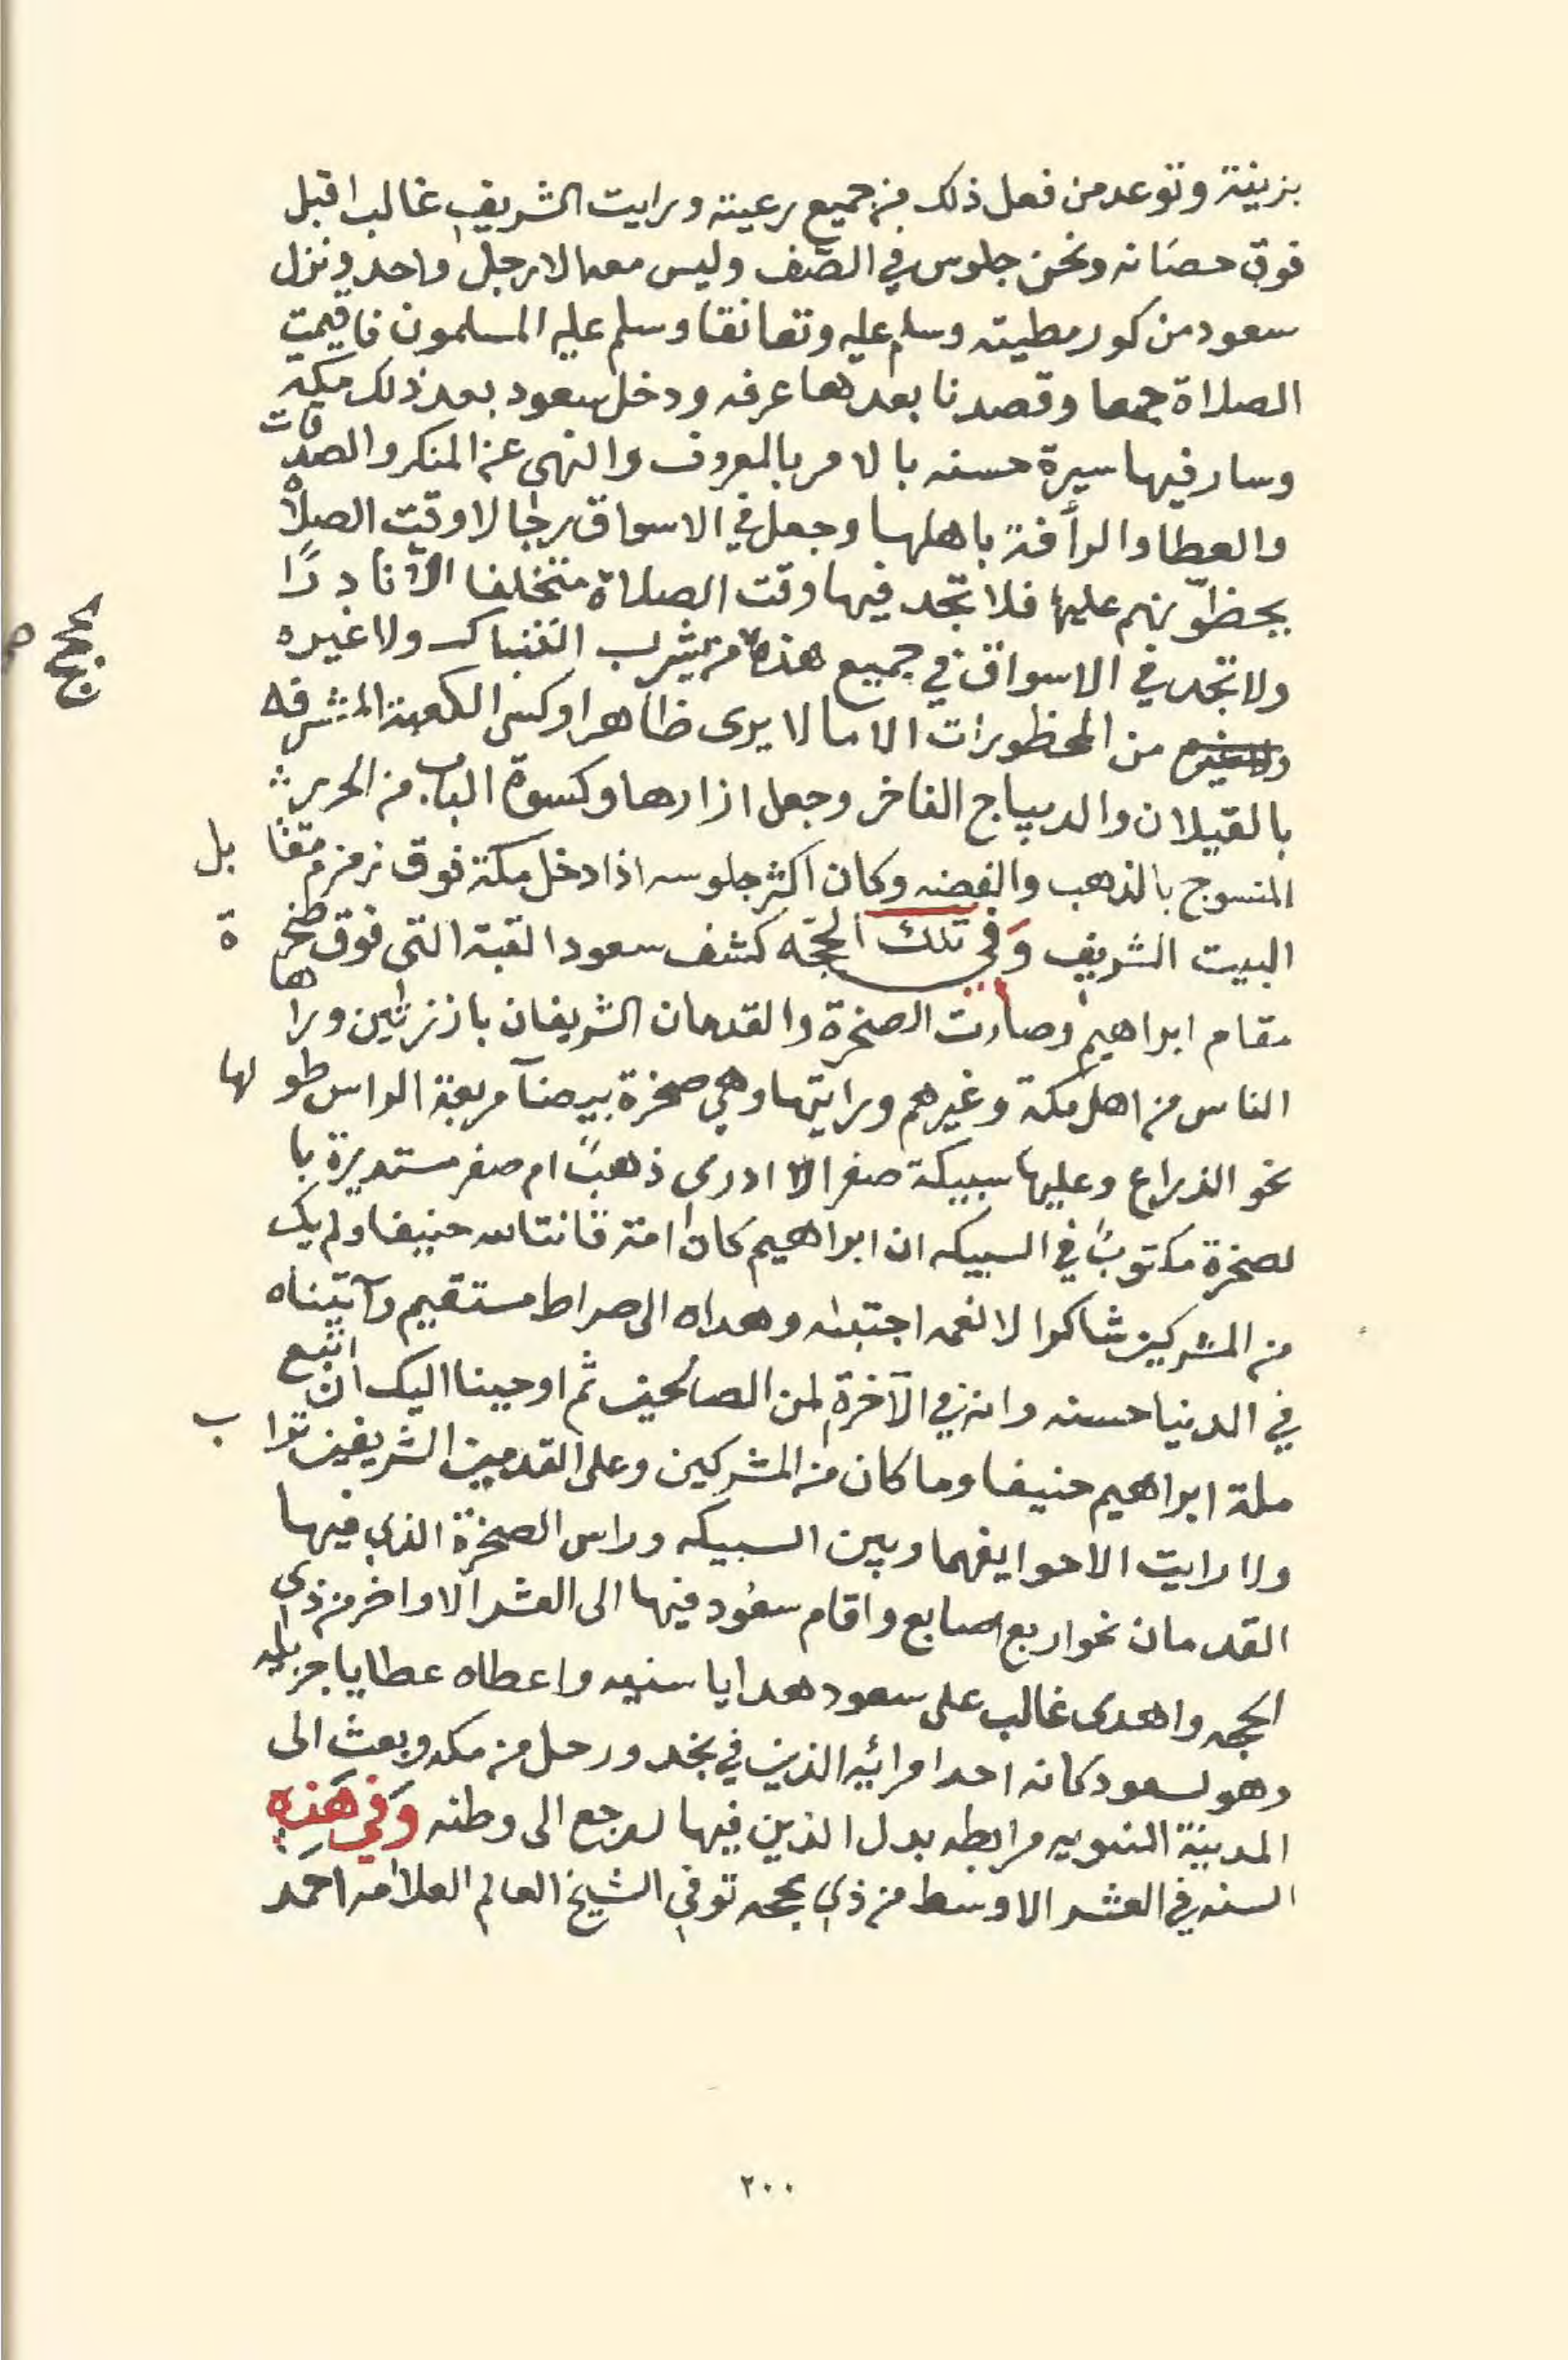 بزينة وتوعد من فعل ذلك من جميع رعيته ورايت الشريف غالب اقبل
فوق حصانه ونحن جلوس في الصّف وليس معه الا رجل واحد ونزل
سعود من كور مطيته وسلم عليه وتعانقا وسلم عليه المسلمون فاقيمت
الصلاة جمعا وقصدنا بعدها عرفه ودخل سعود بعد ذلك مكة
وسار فيها سيرة حسنه بالامر بالمعروف والنهى عن المنكر والصدقات
والعطا والرأفة باهلها وجعل في الاسواق رجالا وقت الصلاة
يحظّونهم عليها فلا تجد فيها وقت الصلاة متخلفا الا نادرًا
ولا تجد في الاسواق في جميع هذه من يشرب التنباك ولا غيره
من المحظورات الا ما لا يرى ظاهرا وكسى الكعبة المشرفه
بالقيلان والديباج الفاخر وجعل ازارها وكسوة الباب من الحرير
المنسوج بالذهب والفضه وكان اكثر جلوسه اذا دخل مكة فوق زمزم مقابل
البيت الشريف وَفي تلك الحجّه كشف سعود القبة التى فوق صخرة
مقام ابراهيم وصارت الصخرة والقدمان الشريفان بارزين وراها
الناس من اهل مكة وغيرهم ورايتها وهي صخرة بيضآ مربعة الراس طولها
نحو الذراع وعليها سبيكة صفرا لا ادرى ذهبً ام صفر مستديرة با
لصخرة مكتوبً في السبيكه ان ابراهيم كان امة قانتا لله حنيفا ولم يك
من المشركين شاكرا لانعمه اجتباه وهداه الى صراط مستقيم وآتيناه
في الدنيا حسنه وانه في الآخرة لمن الصالحين ثم اوحينا اليك ان اتبع
ملة ابراهيم حنيفا وما كان من المشركين وعلى القدمين الشريفين تراب
ولا رايت الا حوايفهما وبين السبيكه وراس الصخرة الذي فيها
القدمان نحو اربع اصابع واقام سعُود فيها الى العشر الاواخر من ذى
الحجه واهدى غالب على سعود هدايا سنيه واعطاه عطايا جزيله
وهو لسعود كانه احد امرائيه الذين في نجد ورحل من مكه وبعث الى
المدينة النبويه مرابطه بدل الذين فيها ورجع الى وطنه وَفي هَذِهِ
السنه في العشر الاوسط من ذي حجه توفي الشيخ العالم العلامه احمَد
٢٠٠